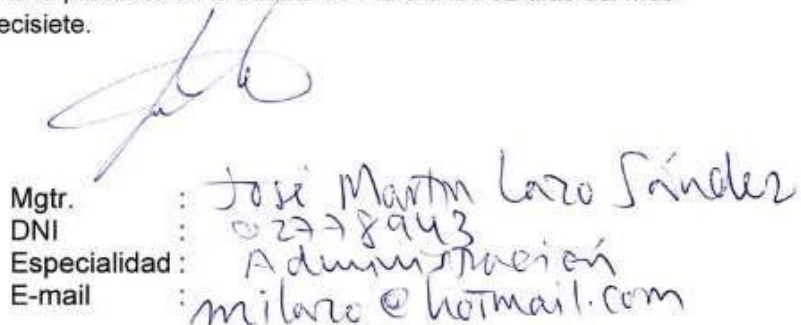 ecisiete.
Mgtr. : José Martín Lazo Sánchez
DNI : 02778943
Especialidad : Administración
E-mail : milazo@hotmail.com